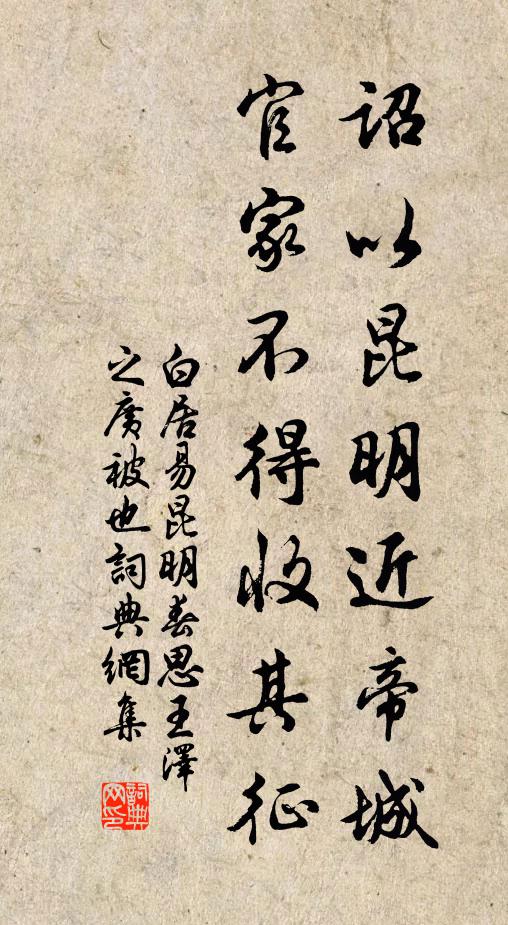 詔以昆明近帝城
官家不得收其征
白居易昆明春思王澤
之廣被也詞典網集
詞典
网印